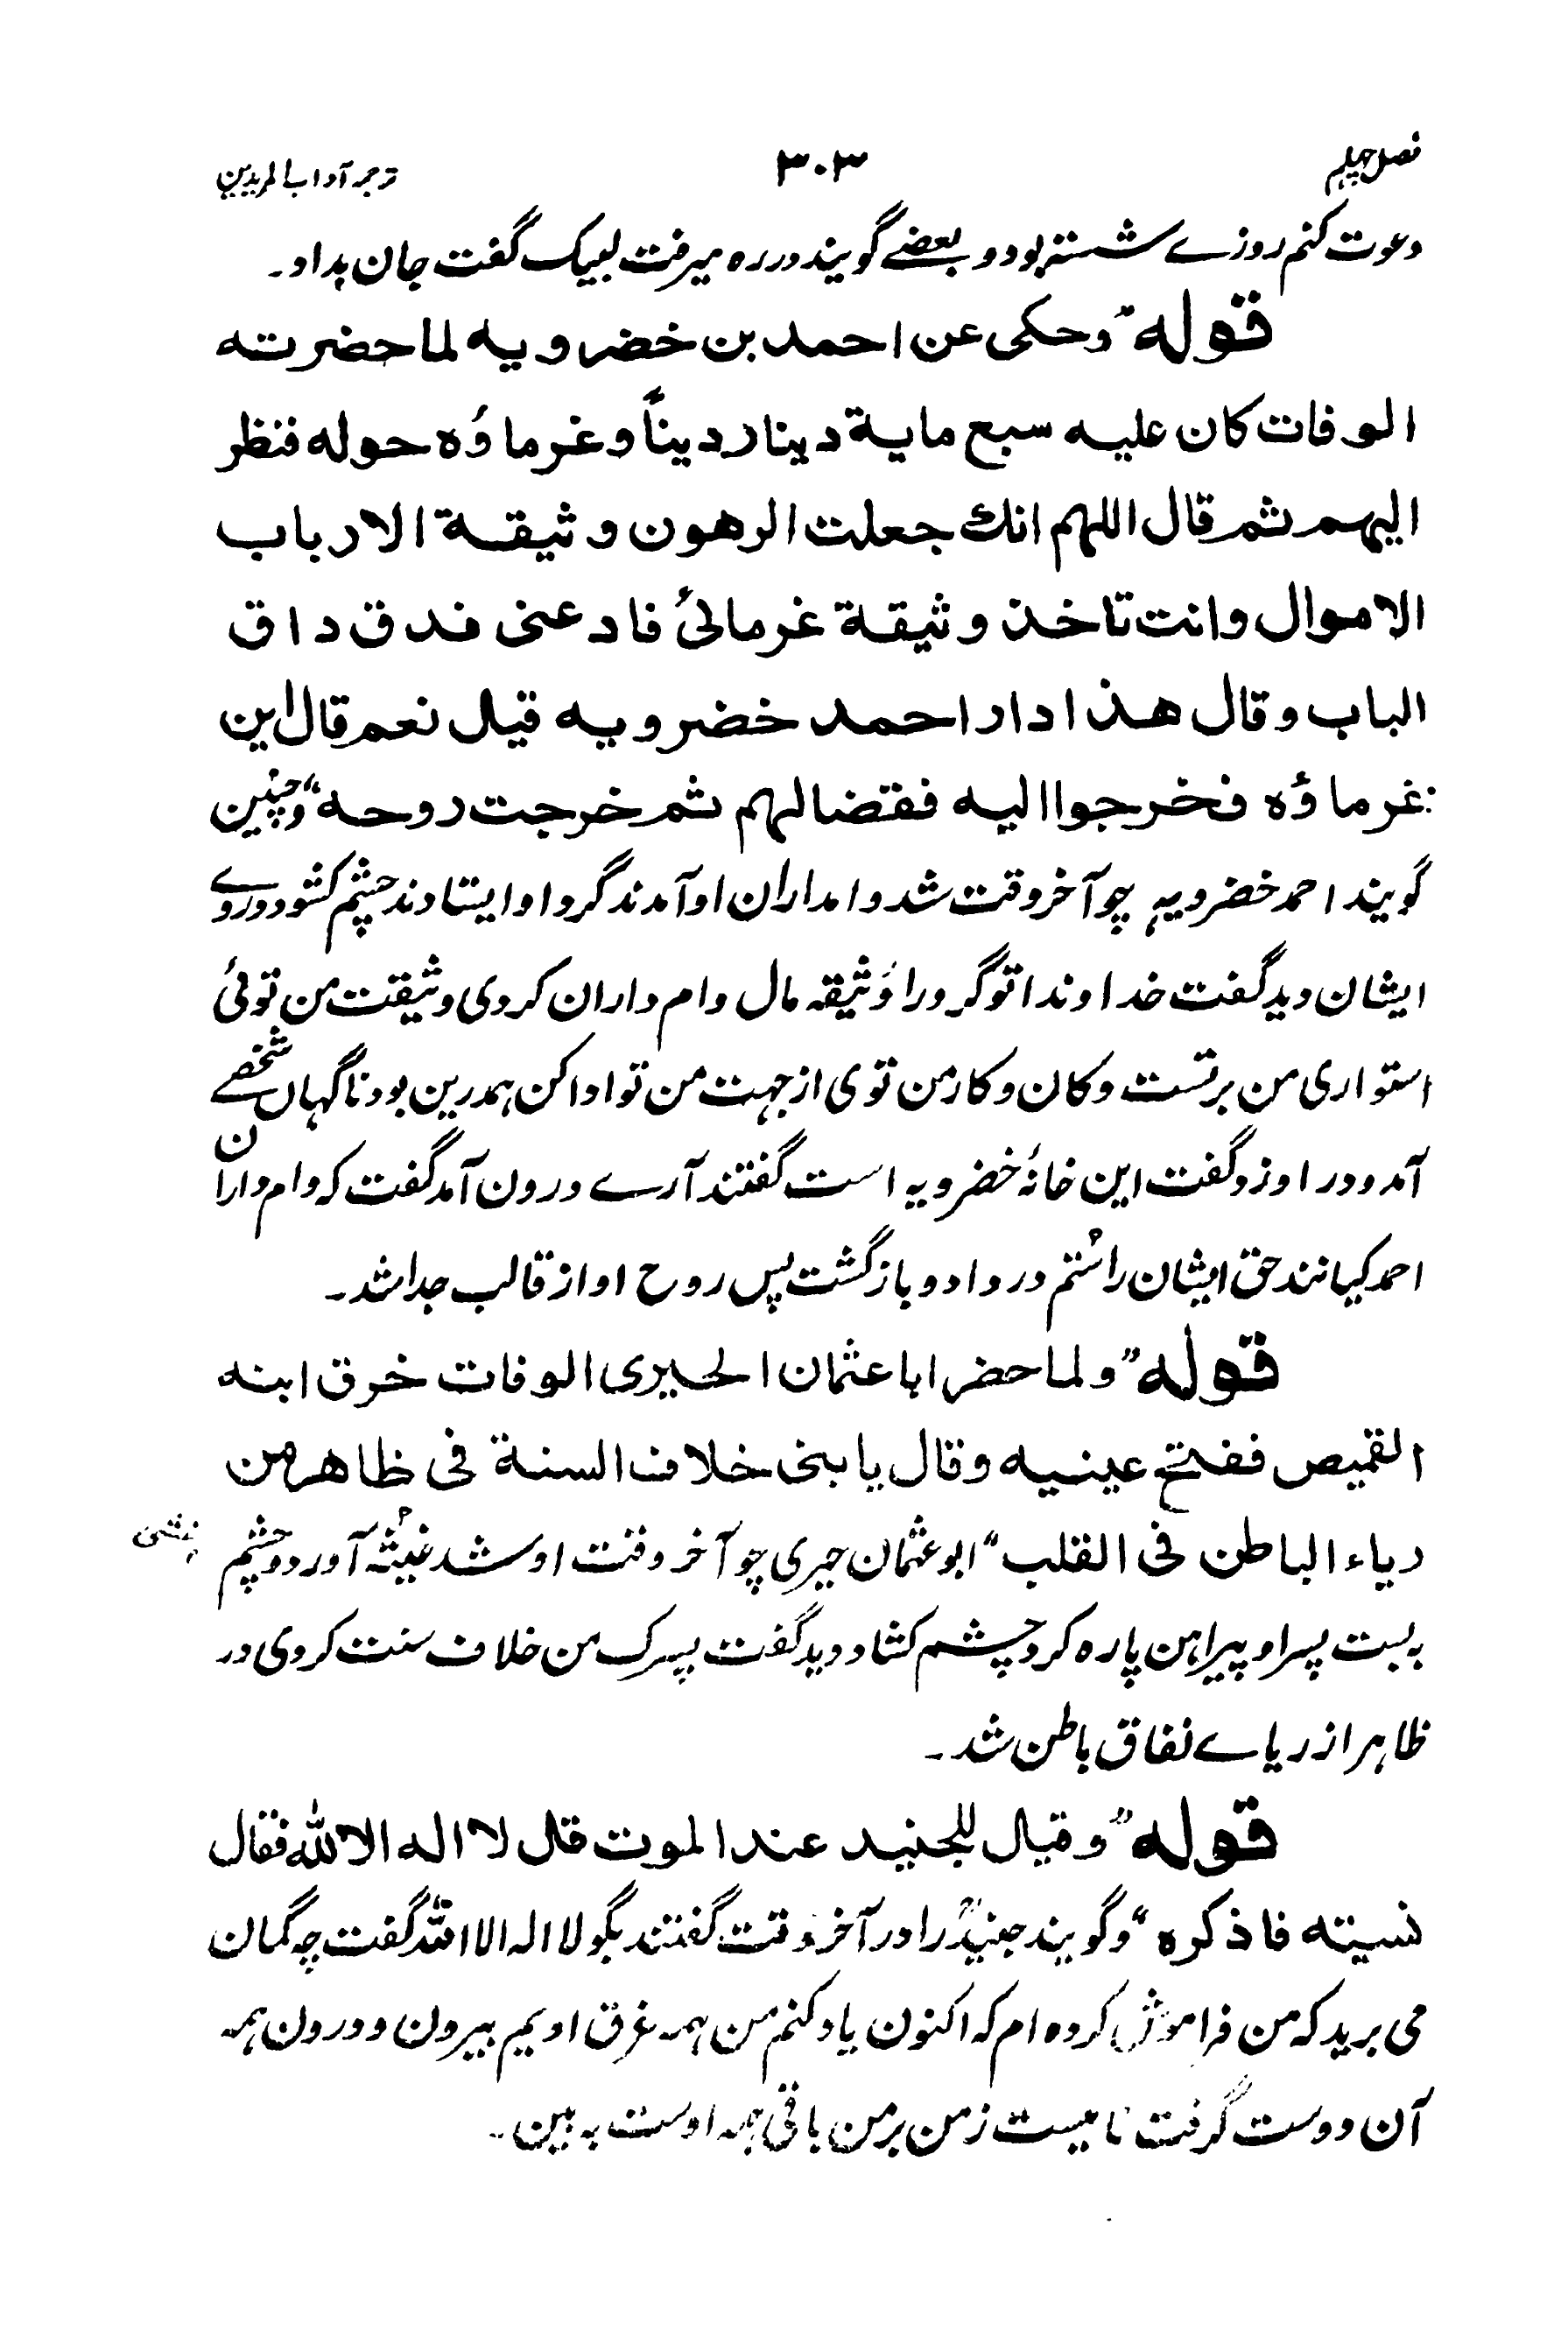 فصل چہلم
۳۰۳
ترجمہ آداب المریدین
دعوت کنم روزے نشستہ بود و بعضے گویند در رہ میرفت لبیک گفت جان بداد۔
قوله "وحکی عن احمد بن خضرویه لما حضرته
الوفات کان علیه سبع مایة دینار دیناً و غرماؤه حوله فنظر
الیهم ثم قال اللهم انك جعلت الرهون وثیقة الارباب
الاموال وانت تاخذ وثیقة غرمائی فاد عنی فدق داق
الباب وقال هذا دار احمد خضرویه قیل نعم قال این
غرماؤه فخرجوا الیه فقضا لهم ثم خرجت روحه" و چنین
گویند احمد خضرویہ چو آخر وقت شد وامداران او آمدند گرد او ایستادند چشم کشود و روے
ایشان دید گفت خداوندا تو گرو را وثیقہ مال وام داران کردی وثیقت من توئی
استواری من برتست و کان و کار من توی از جہت من تو ادا کن ہمدرین بود ناگہاں شخصے
آمد و در او زد و گفت این خانۂ خضرویہ است گفتند آرے درون آمد گفت کہ وام داران
احمد کیانند حق ایشان را ستم در داد و بازگشت پس روح او از قالب جدا شد۔
قوله "ولما حضر ابا عثمان الحیری الوفات خرق ابنه
القمیص ففتح عینیه وقال یا بنی خلاف السنة فی ظاهر من
ریاء الباطن فی القلب" ابو عثمان حیری چو آخر وقت او شد غیبتہ آورد دو چشم
بہ بست پسر او پیراہن پارہ کرد چشم کشاد و دید گفت پسرک من خلاف سنت کردی در
ظاہر از ریاے نفاق باطن شد۔
قوله "وقیل للجنید عند الموت قل لا اله الا الله فقال
نسیته فاذکره" و گویند جنیدؒ را در آخر وقت گفتند بگو لا الہ الا اللہ گفت چہ گمان
می برید کہ من فراموش کردہ ام کہ اکنون یاد کنم من ہمہ غرق اویم بیرون و درون ہمہ
آن دوست گرفت نامیست ز من بر من باقی ہمہ اوست بہ بین۔